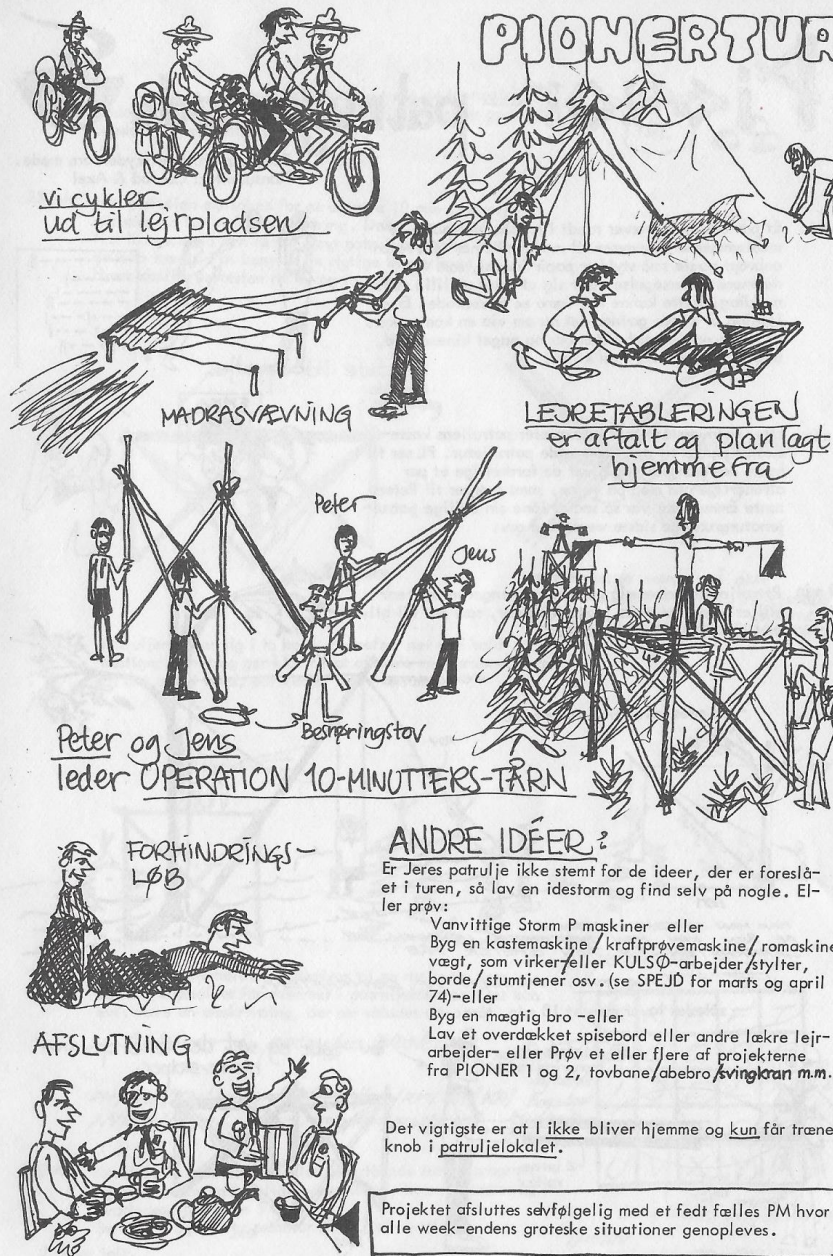 PIONERTUR
vi cykler
ud til lejrpladsen
MADRASVÆVNING
LEJRETABLERINGEN
er aftalt og planlagt
hjemmefra
Peter
Jens
Besnøringstov
Peter og Jens
leder OPERATION 10-MINUTTERS-TÅRN
FORHINDRINGS-
LØB
ANDRE IDÉER?
Er Jeres patrulje ikke stemt for de ideer, der er foreslå-
et i turen, så lav en idestorm og find selv på nogle. El-
ler prøv:
Vanvittige Storm P maskiner eller
Byg en kastemaskine/kraftprøvemaskine/romaskine
vægt, som virker/eller KULSØ-arbejder/stylter,
borde/stumtjener osv. (se SPEJD for marts og april
74)-eller
Byg en mægtig bro-eller
Lav et overdækket spisebord eller andre lækre lejr-
arbejder- eller Prøv et eller flere af projekterne
fra PIONER 1 og 2, tovbane/abebro/svingkran m.m.
Det vigtigste er at I ikke bliver hjemme og kun får træne
knob i patruljelokalet.
AFSLUTNING
Projektet afsluttes selvfølgelig med et fedt fælles PM hvor
alle week-endens groteske situationer genopleves.